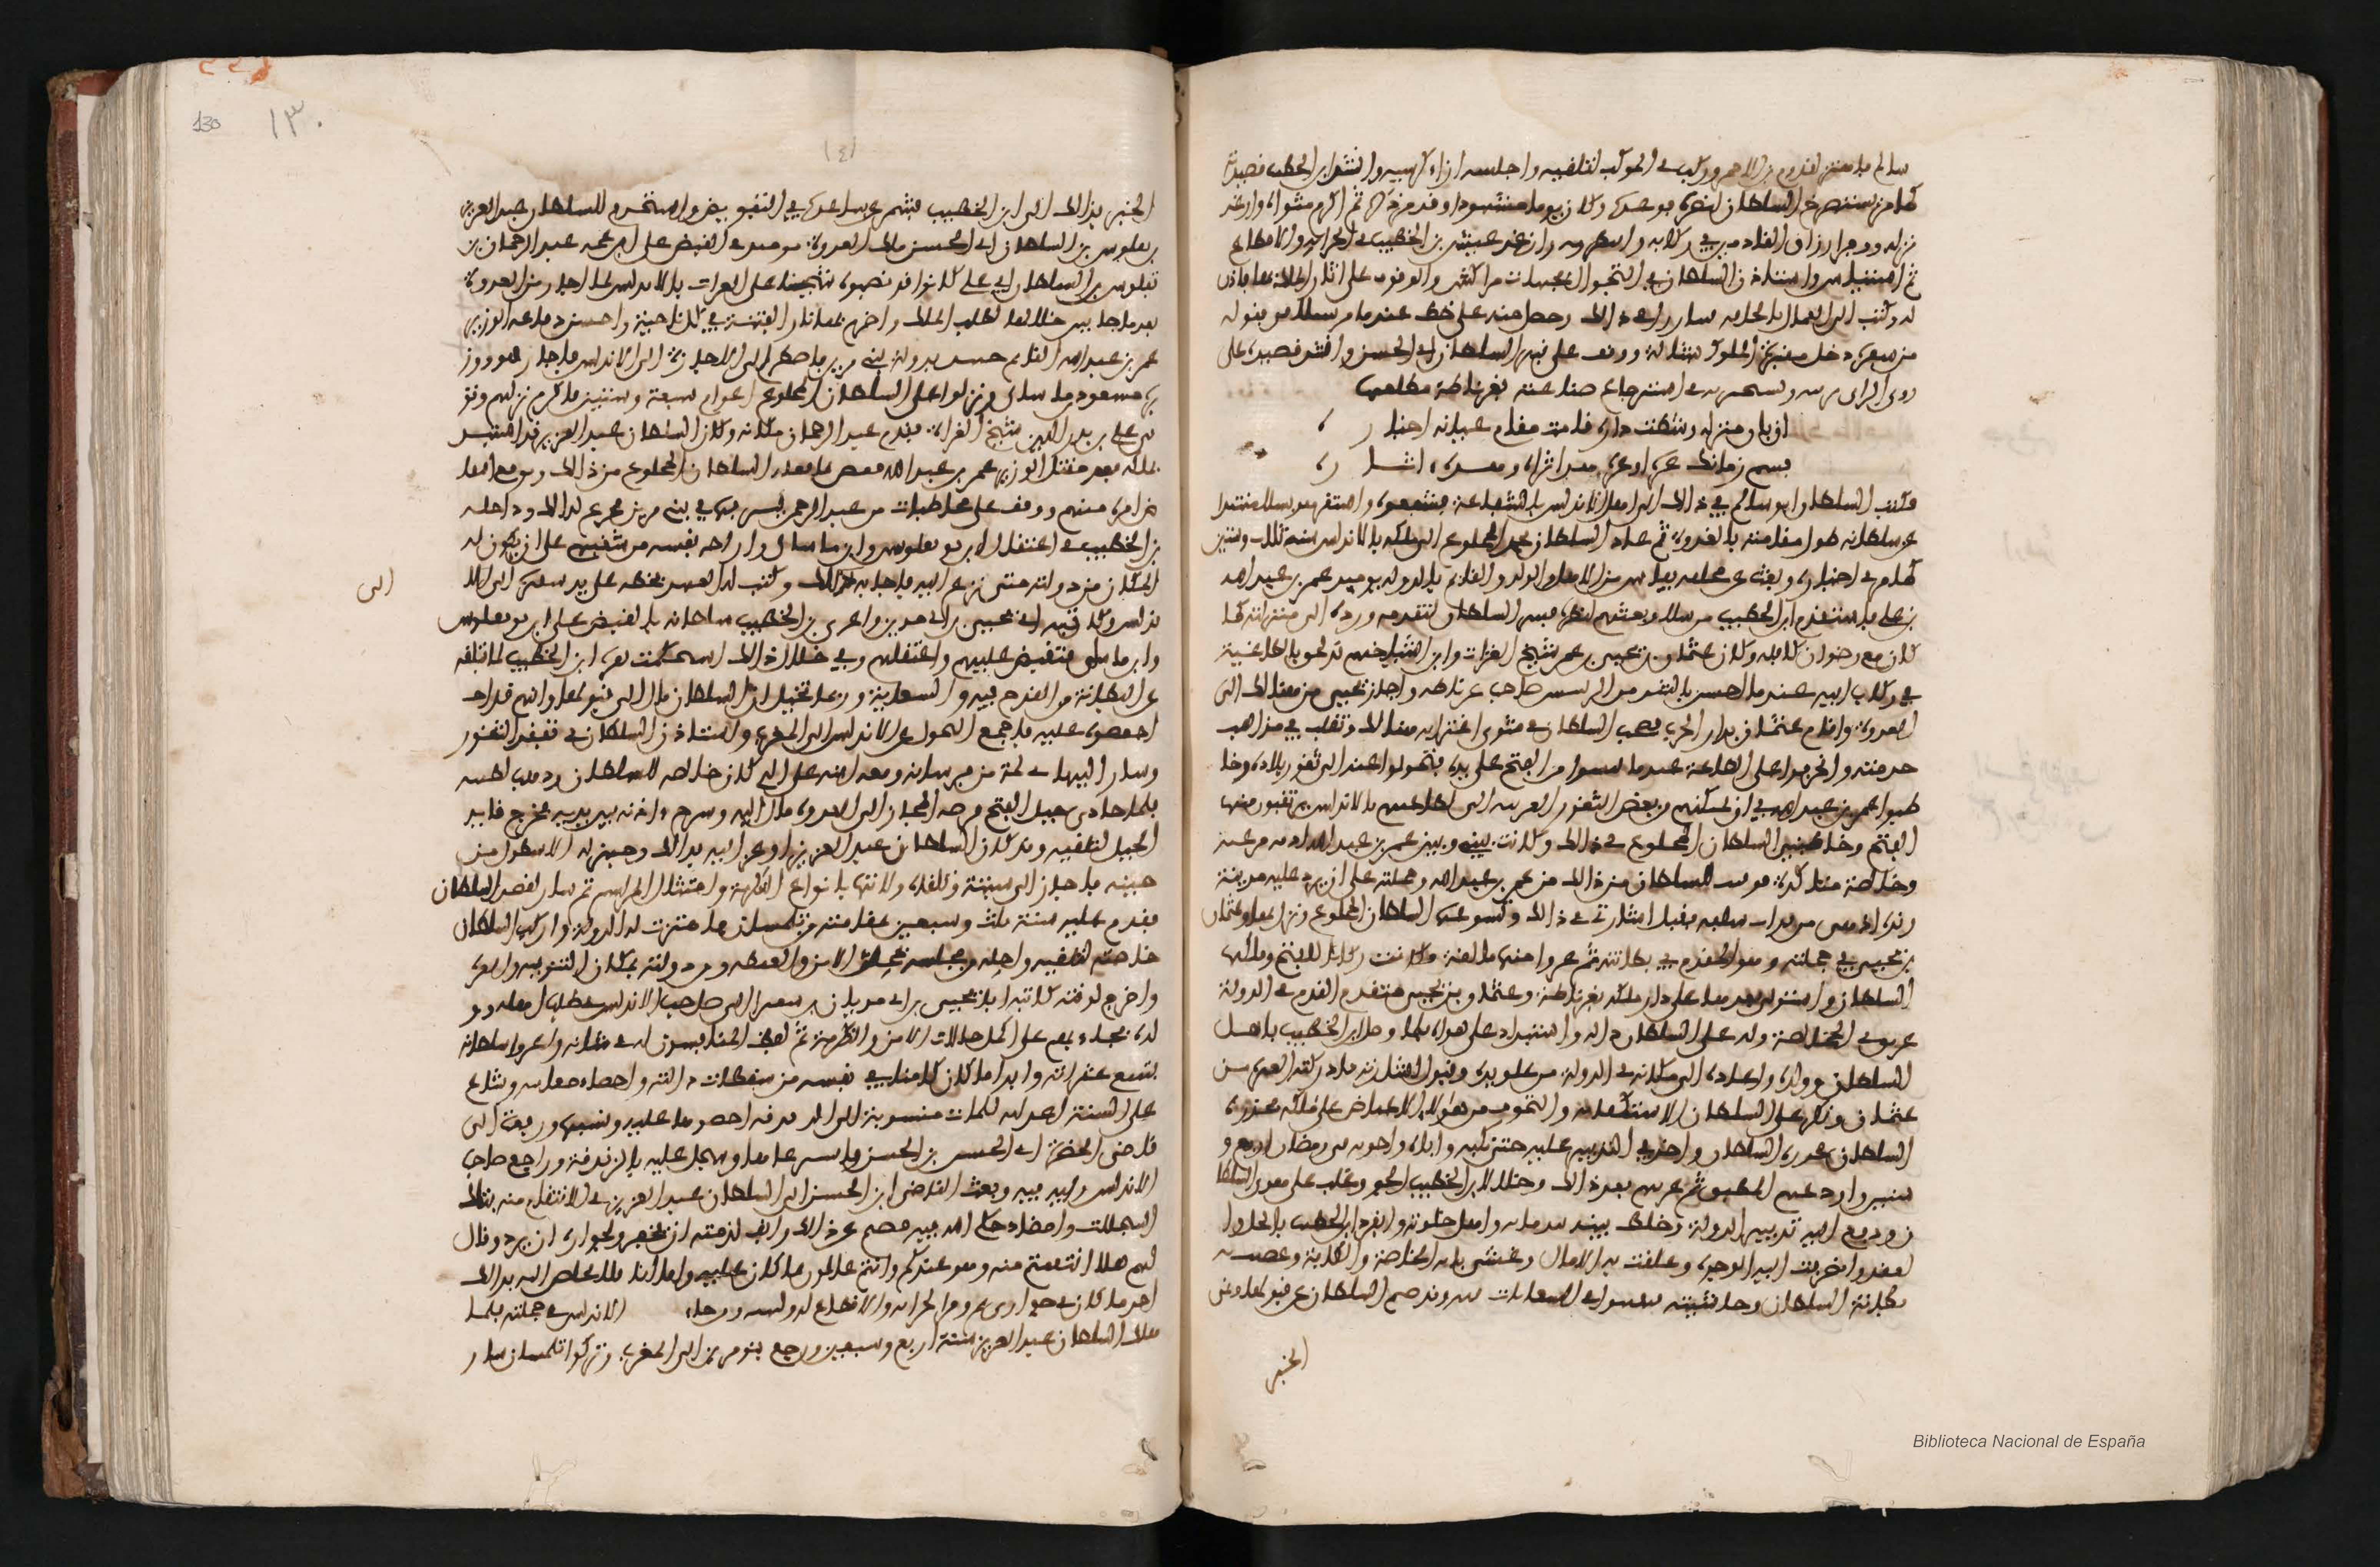 سالم بامتنز لقدوم ابن الاحمر وركب في الموكب لتلقيه واجلسه ازاء كرسيه وانشد ابن الخطيب قصيدته
كما مر يستنصرخ السلطان لنصره فوعده وكان يوما مشهودا وقد مر ذكره ثم اكرم مثواه وارغد
نزله ووفر ارزاق القادمين في ركابه وارغد عيش ابن الخطيب في الجراية والاقطاع
ثم استيأس واستاذن السلطان في التجول بجهات مراكش والوقوف على اثار الملك بها فاذن
له وكتب الى العمال باتحافه في ذالك وحصل منه على حظ وعندما مر بسلا في قفوله
من سفره دخل مقبرة الملوك بشالة ووقف على قبر السلطان ابي الحسن وانشد قصيدة على
روي الراء في استرجاع ضياعه بغرناطة مطلعها
ان بان منزله وشطت داره قامت مقام عيانه اخباره
قسم زمانك عبرة او عبرة هذا ثراه وهذه اثاره
فكتب السلطان ابو سالم في ذالك الى اهل الاندلس بالشفاعة فشفعوه واستقر هو بسلا منتبذا
عن سلطانه طول مقامته بالعدوة ثم عاد السلطان محمد المخلوع الى ملكه بالاندلس سنة ثلاث وستين
كما مر في اخباره وبعث عن مخلفه بفاس من الاهل والولد والقائم بالدولة يوميذ عمر بن عبد الله
بن علي فاستقدم ابن الخطيب من سلا وبعثهم لنظره فسر السلطان لقدومه ورده الى منزلته كما
كان مع رضوان كافله وكان عثمان بن يحيى بن عمر شيخ الغزاة وابن اشياخهم قد لحق بالطاغية
في ركاب ابيه عندما احس بالشر من الرئيس صاحب غرناطة واجاز يحيى من هنالك الى
العدوة واقام عثمان بدار الحرب فصحب السلطان في مثوى اغترابه هنالك وتقلب في مذاهب
خدمته وانحرفوا على الطاغية عندما يئسوا من الفتح على يده فتحولوا عنه الى ثغور بلاده وخا
طبوا عمر بن عبد الله في ان يمكنهم من بعض الثغور الغربية التي لطاعتهم بالاندلس يرتقبون منها
الفتح وخاطبني السلطان المخلوع في ذالك وكانت بيني وبين عمر بن عبد الله
وخالصة متاكدة فوفيت للسلطان من ذالك من عمر بن عبد الله وحملته على ان يرد عليه مدينة
رندة اذ هي من تراث سلفه فقبل اشارتي في ذالك وتسوغها السلطان المخلوع ونزل بها وعثمان
بن يحيى في جملته وهو المقدم في بطانته ثم غزوا منها مالقة فكانت ركابا للفتح وملكها
السلطان واستولى بعدها على دار ملكه بغرناطة وعثمان بن يحيى متقدم القدم في الدولة
عريق في الخالصة وله على السلطان دالة واستبداد على هواه فلما وصل ابن الخطيب باهل
السلطان وولده واعاده الى مكانه في الدولة من علو يده وقبول اشارته فادركته الغيرة من
عثمان ونكر على السلطان الاستكفاء به والتخوف من هؤلاء الاعياص على ملكه فحذره
السلطان واخذ في التدبير عليه حتى نكبه واباه واخوته في رمضان اربع و
ستين واودعهم المطبق ثم غربهم بعد ذالك وخلا لابن الخطيب الجو وغلب على هوى السلطا
ن ودفع اليه تدبير الدولة وخلط بنيه بندمائه واهل خلوته وانفرد ابن الخطيب بالحل وا
لعقد وانصرفت اليه الوجوه وعلقت به الامال وغشي بابه الخاصة والكافة وغصت به
بطانة السلطان وحاشيته السعايات فيه وقد صم السلطان عن قبولها ونمى
الخبر
130 ١٣٠
الخبر بذالك الى ابن الخطيب فشمر عن ساعده في التفويض واستخدم للسلطان عبد العزيز
ابن السلطان ابي الحسن ملك العدوة يوميذ في القبض على ابن عمه عبد الرحمان بن
يفلوسن بن السلطان ابي علي كانوا قد نصبوه شيخا على الغزاة بالاندلس لما اجاز من العدوة
بعد ما جاس خلالها لطلب الملك واضرم بها نار الفتنة في كل ناحية واحسن دفاعه الوزير
عمر بن عبد الله القائم بدولة بني مرين فاضطر الى الاجازة الى الاندلس فاجاز هو ووز
يره مسعود بن ماساي ونزلوا على السلطان المخلوع اعوام سبعة وستين فاكرم نزلهم وتو
في علي بن بدر الدين شيخ الغزاة فقدم عبد الرحمان مكانه وكان السلطان عبد العزيز قد استبد
بملكه بعد مقتل الوزير عمر بن عبد الله فغص بما فعله السلطان المخلوع من ذالك وتوقع انتقا
ض امره منهم ووقف على مخاطبات من عبد الرحمن يسر بها في بني مرين فجزع لذالك وداخله
بن الخطيب في اعتقال ابن يفلوسن وابن ماساي واراحة نفسه من شغبهم على ان يكون له
المكان من دولته متى نزع اليه فاجابه لذالك وكتب له العهد بخطه على يد سفيره الى الا
الى
ندلس وكاتبه ابي يحيى بن ابي مدين واغرى بن الخطيب سلطانه بالقبض على ابن يفلوسن
وابن ماساي فتقبض عليهم واعتقلهم وفي خلال ذالك استحكمت نفرة ابن الخطيب لما بلغه
عن البطانة من القدح فيه والسعاية وربما تخيل ان السلطان مال الى قبولها وانهم قد احـ
احفظوه عليه فاجمع التحول عن الاندلس الى المغرب واستاذن السلطان في تفقد الثغور
وسار اليها في لمة من فرسانه ومعه ابنه علي الذي كان خالصة للسلطان وذهب لطيته
فلما حاذى جبل الفتح فرضة المجاز الى العدوة مال اليه وسرح اذنه بين يديه فخرج قايد
الجبل لتلقيه وقد كان السلطان عبد العزيز اوعز اليه بذالك وجهز له الاسطول من
حينه فاجاز الى سبتة وتلقاه ولاتها بانواع التكرمة وامتثال المراسم ثم سار لقصد السلطان
فقدم عليه سنة ثلاث وسبعين بمقامته من تلمسان فاهتزت له الدولة واركب السلطان
خاصته لتلقيه واحله من مجلسه بمحل الامن والغبطة ومن دولته بمكان التنويه والعزة
واخرج لوقته كاتبه ابا يحيى بن ابي مدين سفيرا الى صاحب الاندلس في طلب اهله وو
لده فجاء بهم على اكمل حالات الامن والتكرمة ثم لغط المنافسون له في شانه واغروا سلطانه
بتتبع عثراته وابداء ما كان كامنا في نفسه من سقطات دالته واحصاء معايبه وشاع
على السنة اعدائه كلمات منسوبة الى الزندقة احصوها عليه ونسبوها ورفعت الى
قاضي الحضرة ابي الحسن بن الحسن فاسترعاها وسجل عليه بالزندقة وراجع صاحب
الاندلس رايه فيه وبعث القاضي ابن الحسن الى السلطان عبد العزيز في الانتقام منه بتلك
السجلات وامضاء حكم الله فيه فصم عن ذالك وانف لذمته ان تخفر ولجواره ان يرد وقال
لهم هلا انتقمتم منه وهو عندكم وانتم عالمون بما كان عليه واما انا فلا يخلص اليه بذالك
احد ما كان في جواري ثم وفر الجراية والاقطاع له ولبنيه ولمن جاء من الاندلس في جملته فلما
هلك السلطان عبد العزيز سنة اربع وسبعين ورجع بنو مرين الى المغرب وتركوا تلمسان سار
Biblioteca Nacional de España